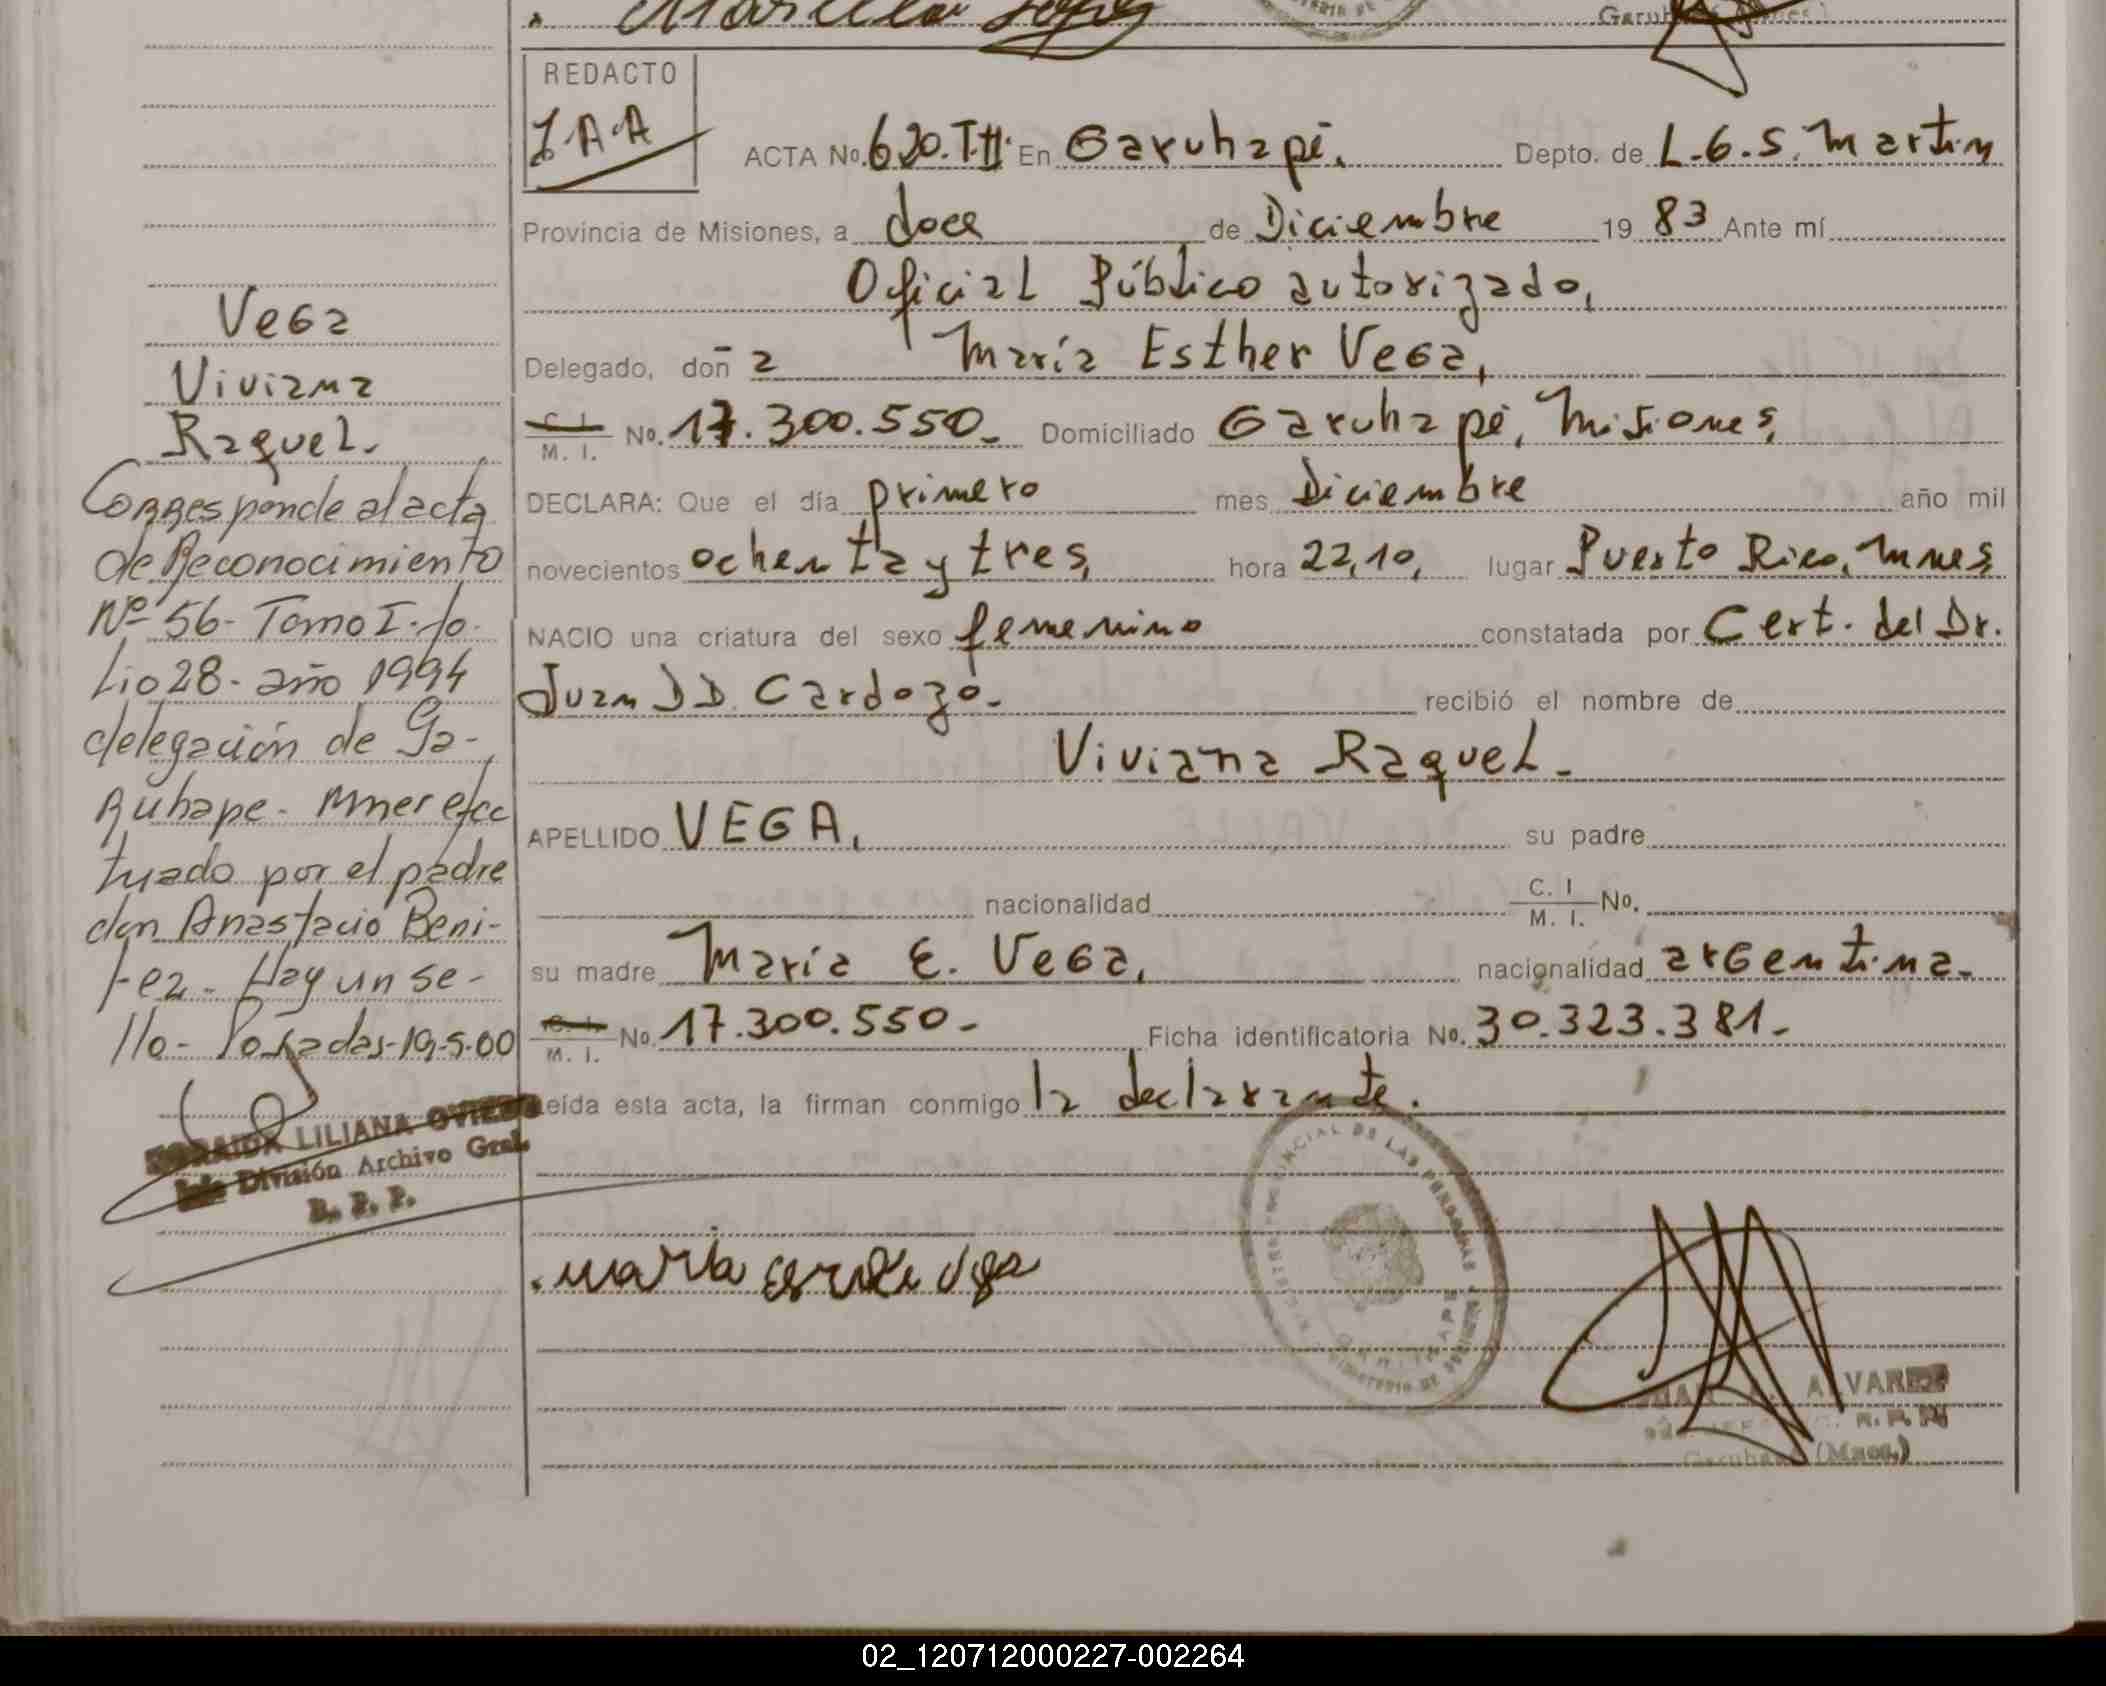 Garuhapé (Mnes)
REDACTO
J.A.A
ACTA No. 620.T.II. En Garuhapé, Depto. de L.G.S. Martin
Provincia de Misiones, a doce de Diciembre 19 83 Ante mí
Oficial Público autorizado,
Delegado, don̄ a María Esther Vega,
C. I. M. I. No. 17.300.550. Domiciliado Garuhapé, Misiones,
DECLARA: Que el día primero mes Diciembre año mil
novecientos ochenta y tres, hora 22,10, lugar Puerto Rico, Mnes,
NACIO una criatura del sexo femenino constatada por Cert. del Dr.
Juan D D. Cardozo. recibió el nombre de
Viviana Raquel.
APELLIDO VEGA, su padre
nacionalidad C. I M. I. No.
su madre María E. Vega, nacionalidad argentina.
C. I. M. I. No. 17.300.550. Ficha identificatoria No. 30.323.381.
Leída esta acta, la firman conmigo la declarante.
Vega
Viviana
Raquel.
Corresponde al acta
de Reconocimiento
Nº 56- Tomo I. fo-
lio 28- año 1994
delegación de Ga-
Ruhape- Mnes efec
tuado por el padre
don Anastacio Beni-
tez- Hay un se-
llo- Posadas-19-5-00
LILIANA
División Archivo Gral.
R. P. P.
PROVINCIAL DE LAS PERSONAS
GARUHAPE
MINISTERIO DE GOBIERNO
ALVAREZ
R. P. P.
Garuhapé (Mnes.)
02_120712000227-002264